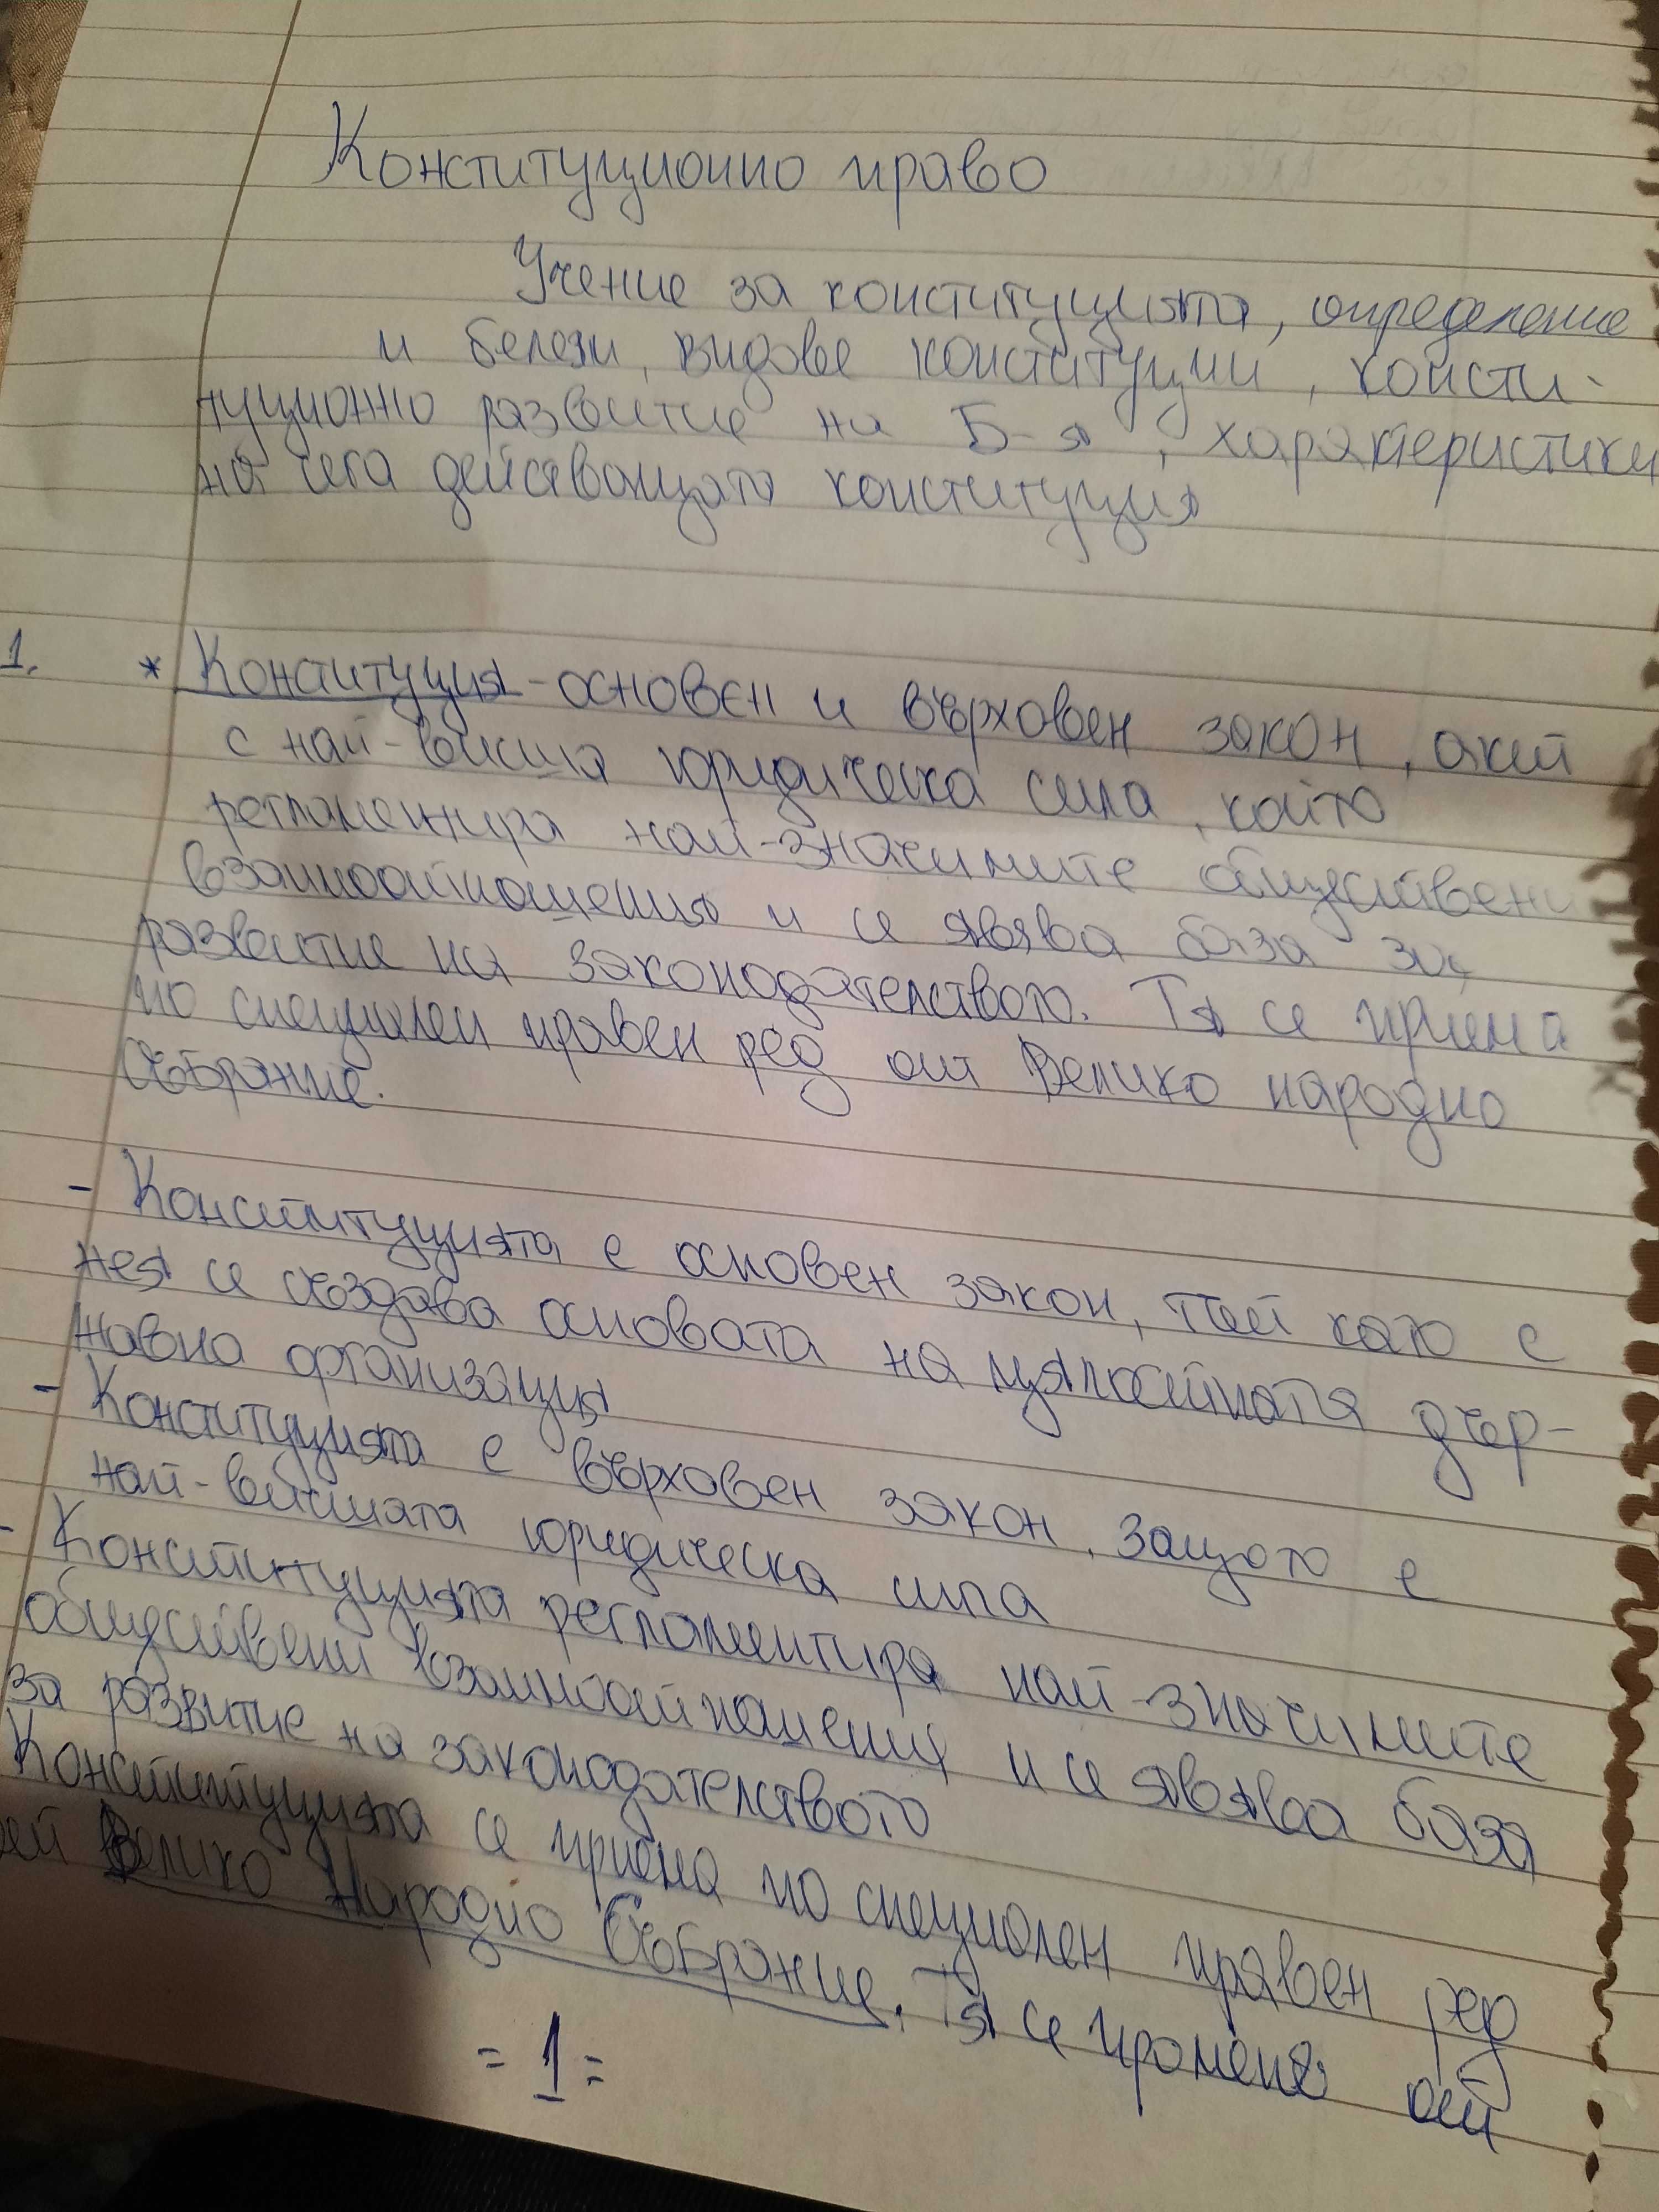 Конституционно право
Учение за конституцията, определение
и белези, видове конституции, консти-
туционно развитие на Б-я, характеристики
на сега действащата конституция
1. * Конституция - основен и върховен закон, акт
с най-висша юридическа сила, който
регламентира най-значимите обществени
взаимоотношения и се явява база за
развитие на законодателството. Тя се приема
по специален правен ред от Велико народно
събрание.
- Конституцията е основен закон, тъй като с
нея се създава основата на цялостната дър-
жавна организация
- Конституцията е върховен закон, защото е
най-висшата юридическа сила
- Конституцията регламентира най-значимите
обществени взаимоотношения и се явява база
за развитие на законодателството
Конституцията се приема по специален правен ред
от Велико Народно Събрание. Тя се променя от
= 1 =